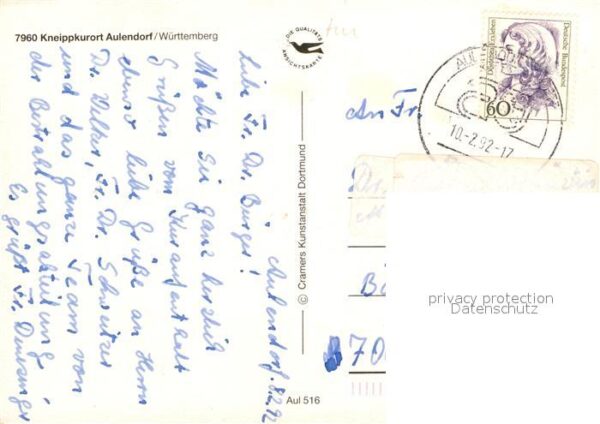 7960 Kneippkurort Aulendorf/Württemberg
DIE QUALITÄTS
ANSICHTSKARTE
Aulendorf, 8.2.92
Liebe Fr. Dr. Bürger!
Möchte Sie ganz herzlich
Grüßen vom Kuraufenthalt
ebenst liebe Grüße an Herrn
Dr. Welker, Fr. Dr. Schweitzer
und das ganze Team von
der Bestrahlungsabteilung
Es grüßt Fr.
© Cramers Kunstanstalt Dortmund
Aul 516
Deutsche Bundespost
60
10.-2.92-17
An Fr.
Dr.
70
privacy protection
Datenschutz